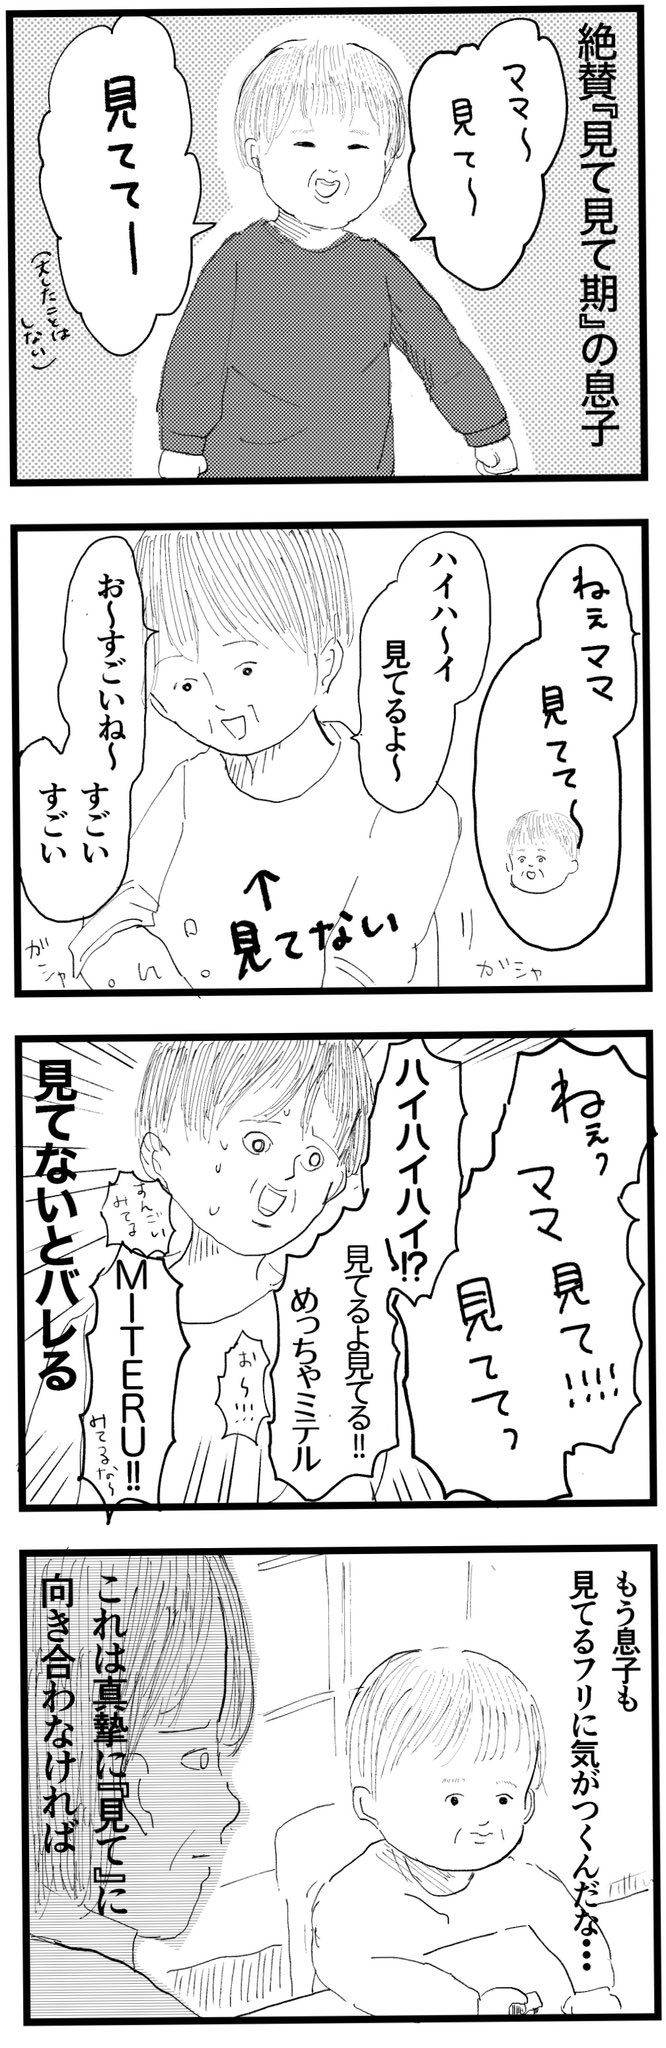 絶賛『見て見て期』の息子
ママ〜
見て〜
見ててー
(大したことは
しない)
ねぇママ
見てて〜
ハイハ〜イ
見てるよ〜
お〜すごいね〜
すごい
すごい
↑
見てない
ガシャ
ガシャ
ねぇっ
ママ 見て!!!!
見ててっ
ハイハイハイ!?
見てるよ見てる!!
めっちゃミテル
お〜!!!
すんごい
みてる
MITERU!!
みてるな〜
見てないとバレる
もう息子も
見てるフリに気がつくんだな…
これは真摯に『見て』に
向き合わなければ